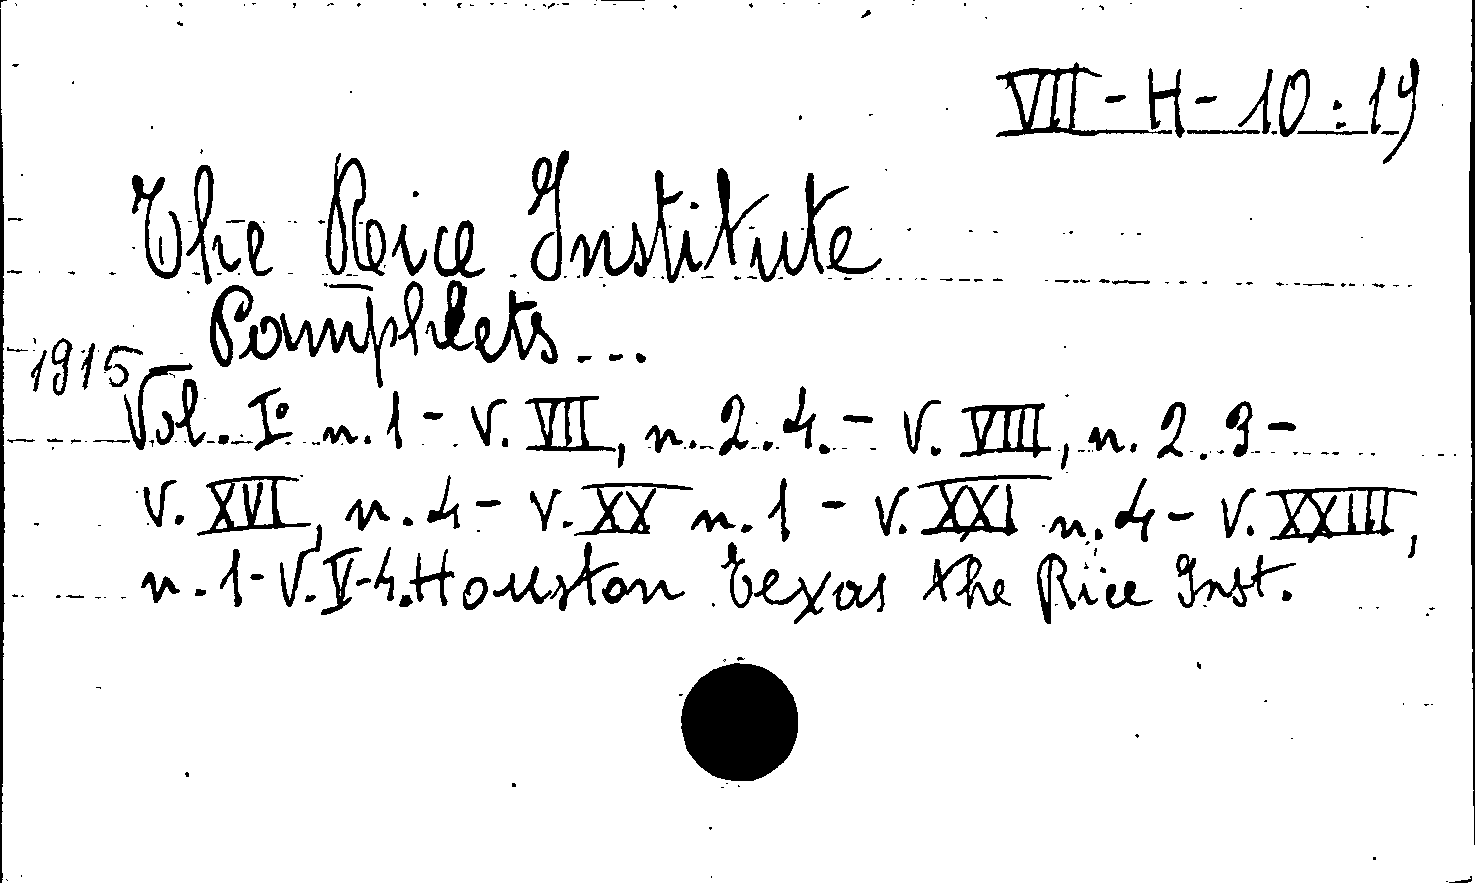 VII-H-10:19
The Rice Institute
Pamphlets...
1915
Vol. I° n.1 - V. VII, n.2.4. - V. VIII, n. 2.3 -
V. XVI, n.4 - V. XX n.1 - V. XXI n.4 - V. XXIII,
n.1-V.V-4. Houston Texas the Rice Inst.